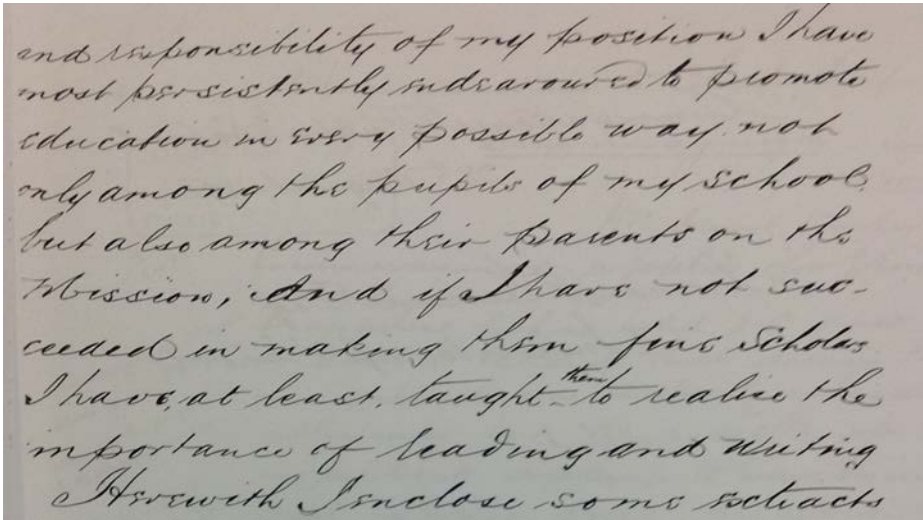 and responsibility of my position I have
most persistently endeavoured to promote
education in every possible way. not
only among the pupils of my school,
but also among their parents on the
Mission; And if I have not suc-
ceeded in making them fine Scholars
I have, at least, taught them to realise the
importance of reading and writing
Herewith I enclose some extracts